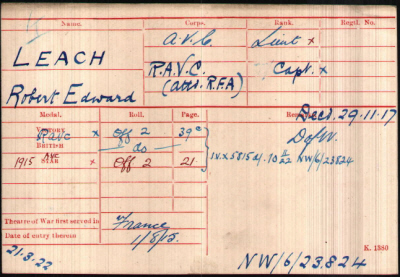 Name. Corps. Rank. Regtl. No.
LEACH A.V.C. Lieut x
R.A.V.C. Capt. x
(attd. R.F.A)
Robert Edward
Medal. Roll. Page. Remarks. Decd. 29.11.17
VICTORY RAVC x Off 2 39c DofW.
BRITISH do
1915 AVC STAR x Off 2 21 NW/6/23824
Theatre of War first served in France
Date of entry therein 1/8/15. K. 1380
21.3.22
NW/6/23824